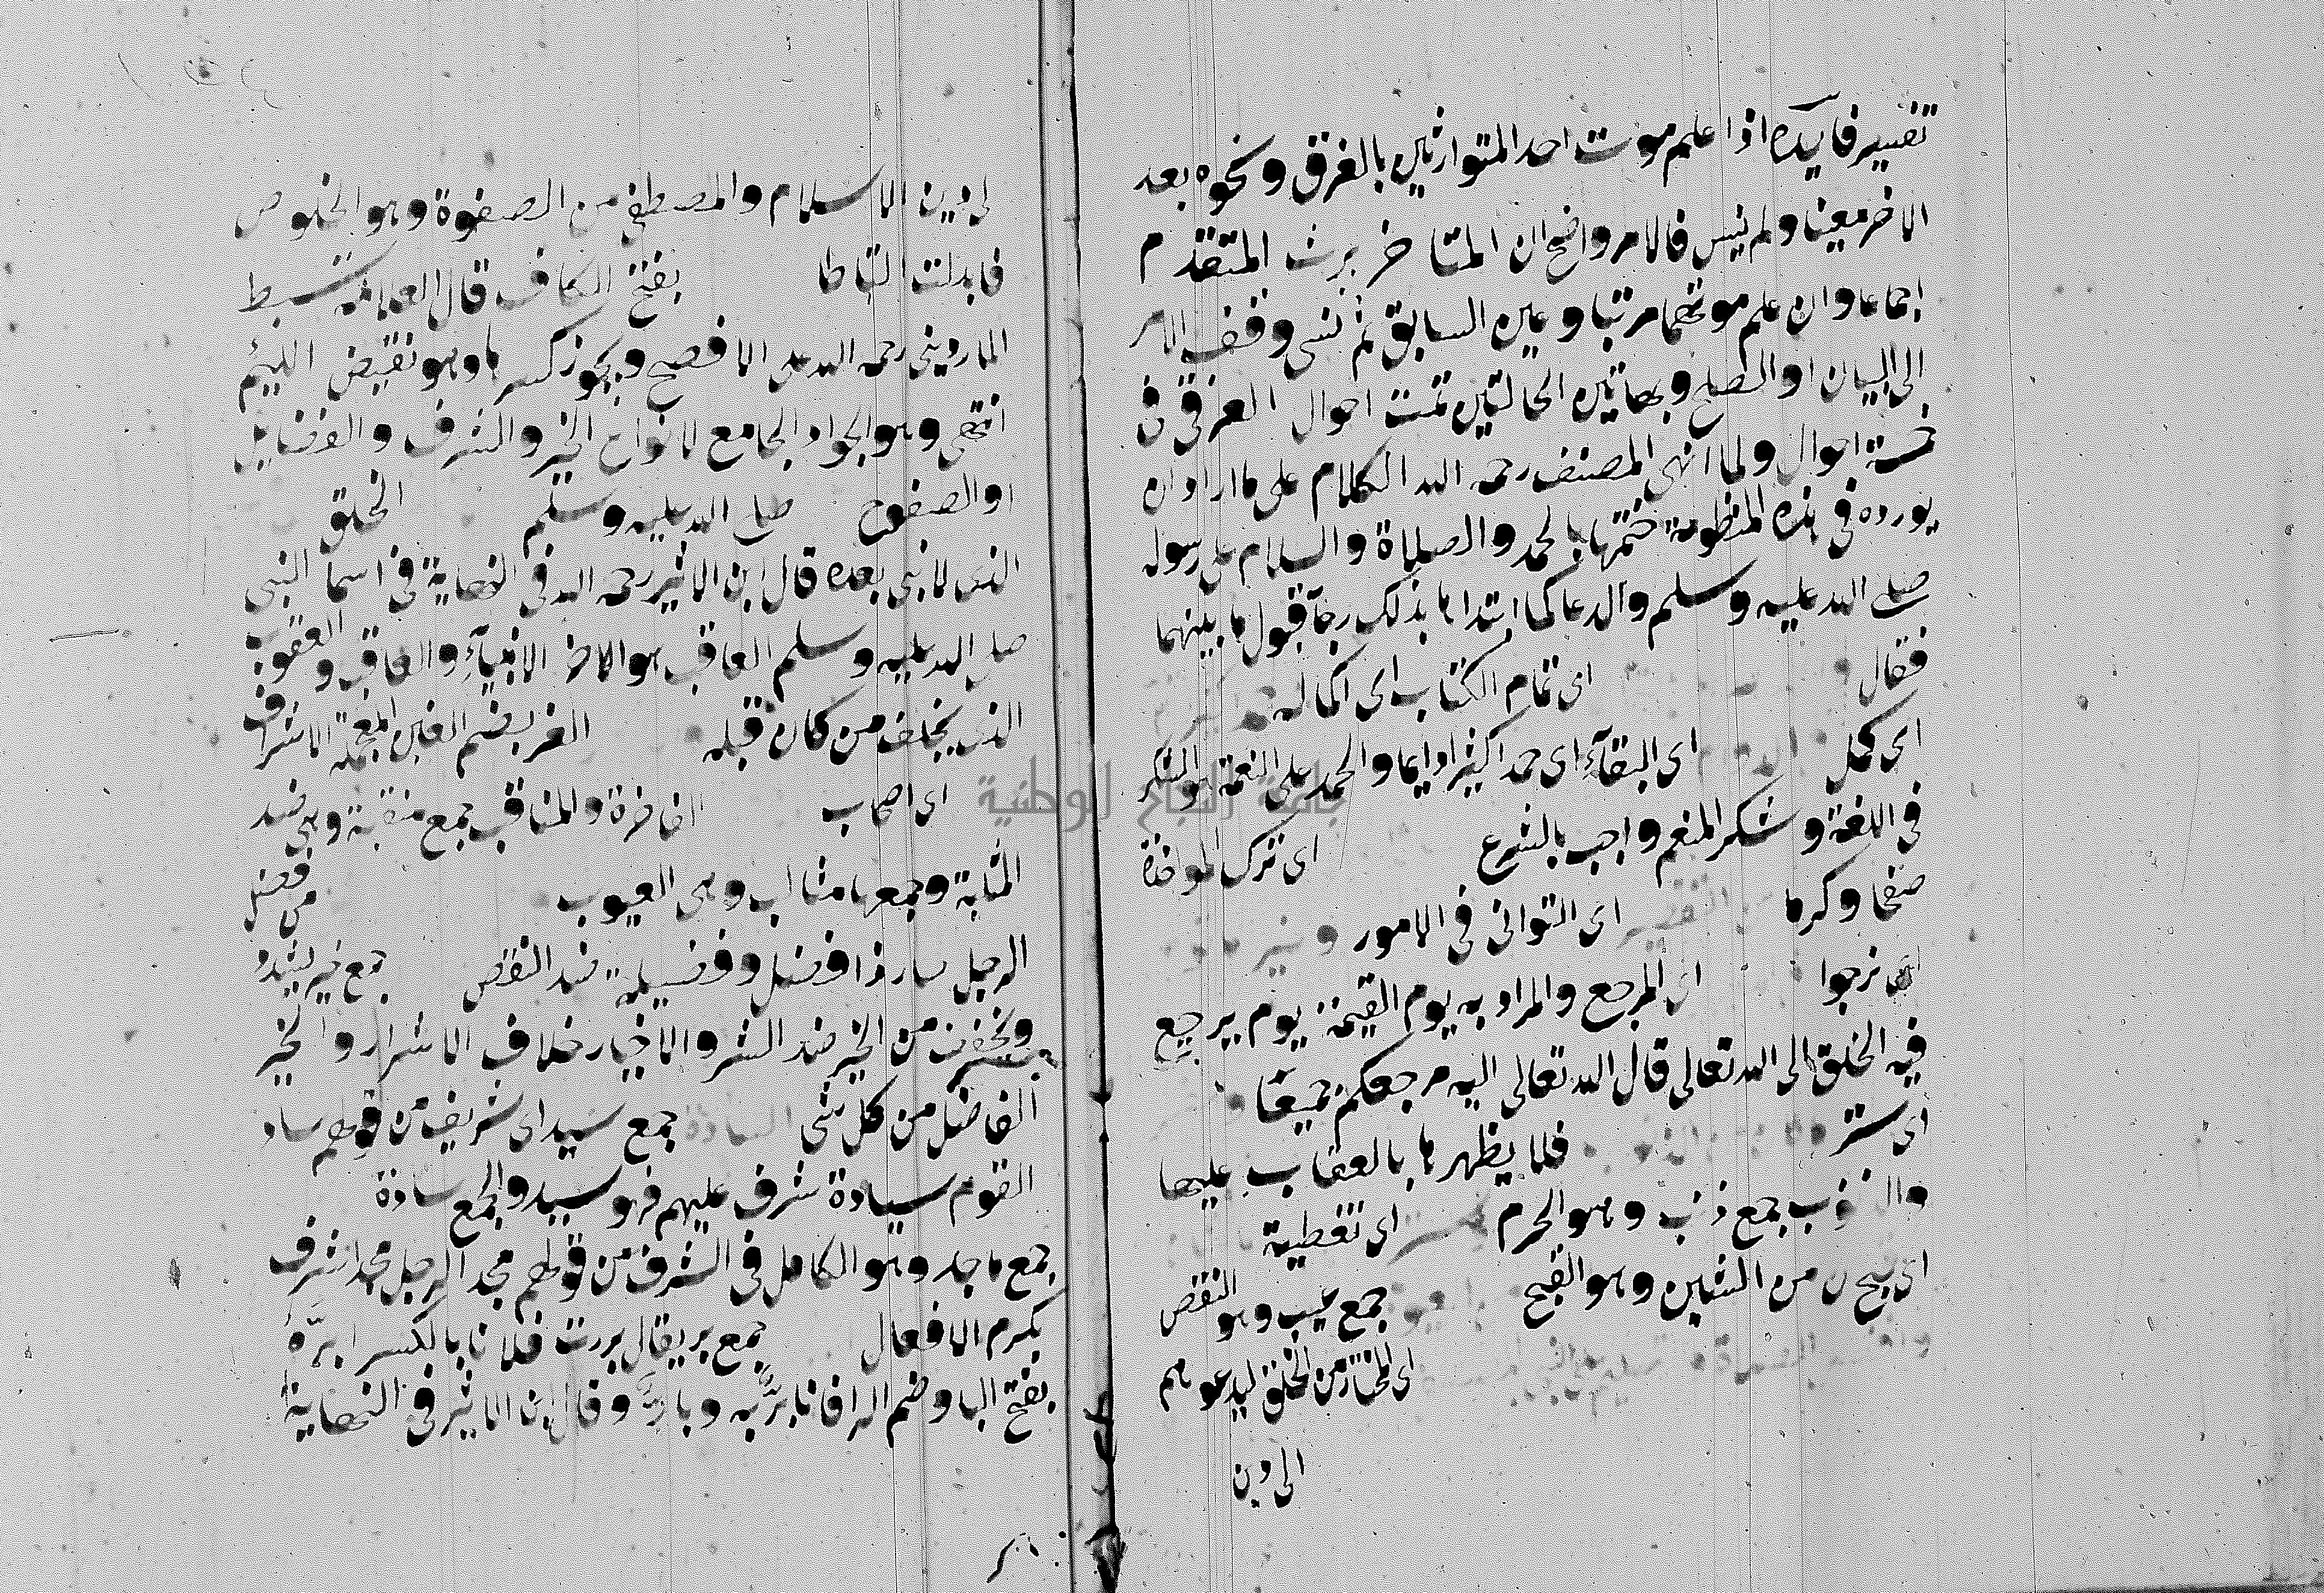 تغيير فايدة اذا علم موت احد المتوارثين بالغرق ونحوه بعد
الاخر معينا ولم ينس فالامر واضح ان المتاخر يرث المتقدم
اجماعا وان علم موتهما مرتبا وعين السابق ثم نسي وقف الامر
الى البيان او الصلح وبهاتين الحالتين تمت احوال الغرقى في
خمسة احوال ولما انهى المصنف رحمه الله الكلام على ما اراد ان
يورده في هذه المنظومة ختمها بالحمد والصلاة والسلام على رسوله
صلى الله عليه وسلم والدعا كما ابتداها بذلك رجآ قبول ما بينهما
فقال اى تمام الكتاب اى اكماله
اى كمل اى البقآء اى حمدا كثيرا دايما والحمد على النعمة هو الشكر
في اللغة وشكر المنعم واجب بالشرع اى ترك المواخذة
صفحا وكرما اى التوانى في الامور
اى نرجوا اى المرجع والمراد به يوم القيمة يوم يرجع
فيه الخلق الى الله تعالى قال الله تعالى اليه مرجعكم جميعا
اى ستر فلا يظهرها بالعقاب عليها
والذنوب جمع ذنب وهو الجرم اى تغطية
اى قبح من الشين وهو القبح جمع عيب وهو النقص
اى المختار من الخلق ليدعوهم
الى دين
لى دين الاسلام والمصطفى من الصفوة وهو الخلوص
فابدلت التا طا بفتح الكاف قال العلامة سبط
الماردينى رحمه الله على الافصح ويجوز كسرها وهو نقيض اللئيم
انتهى وهو الجواد الجامع لانواع الخير والشرف والفضايل
او الصفوح صلى الله عليه وسلم الخلق
الذى لا نبى بعده قال ابن الاثير رحمه الله في النهاية في اسما النبى
صلى الله عليه وسلم العاقب هو الاخر الانبيآء والعاقب والعقوب
الذى يخلف من كان قبله الغر بضم الغين المعجمة الاشراف
اى اصحاب الفاخرة والمناقب جمع منقبة وهى ضد
المثلبة وجمعها مثالب وهى العيوب من فضل
الرجل صار ذا فضل وفضيلة ضد النقص جمع خير يشدد
ويخفف من الخير ضد الشر والاخيار خلاف الاشرار والخير
الفاضل من كل شى السادة جمع سيد اى شريف من قولهم ساد
القوم سيادة شرف عليهم فهو سيد والجمع سادة
جمع ماجد وهو الكامل في الشرف من قولهم مجد الرجل مجدا شرف
بكرم الافعال جمع بر يقال بررت فلانا بالكسر ابره
بفتح البا وضم الرا فانا بر به وبار وقال ابن الاثير في النهاية
جامعة النجاح الوطنية